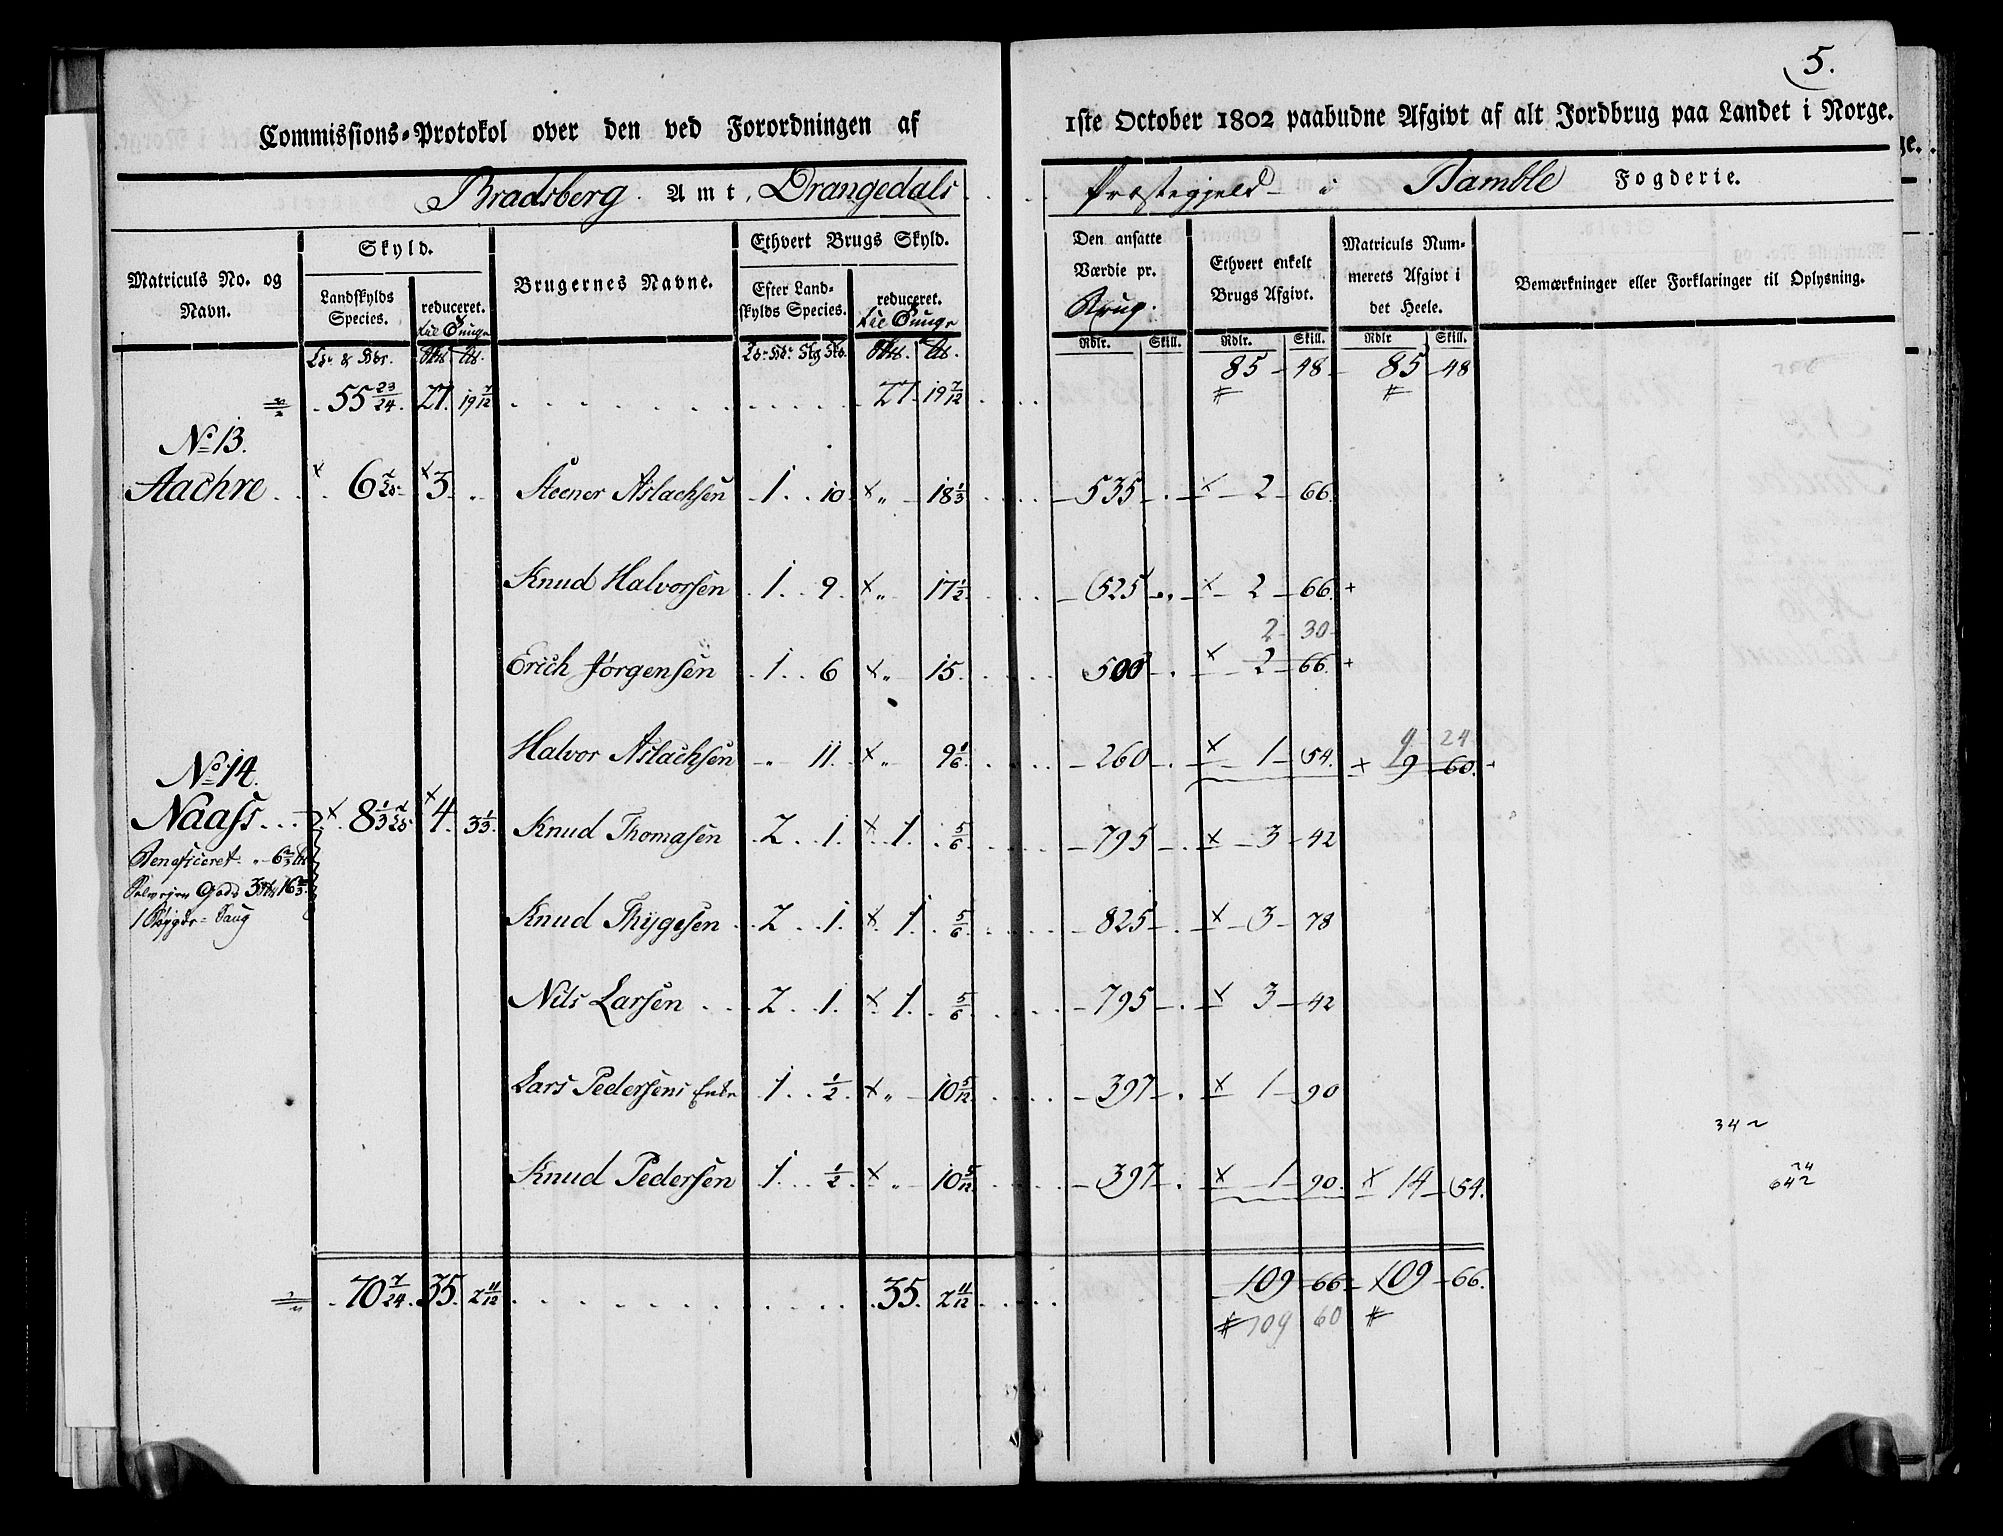 5.
Commissions-Protokol over den ved Forordningen af 1ste October 1802 paabudne Afgivt af alt Jordbrug paa Landet i Norge.
Bradsberg Amt, Drangedals Præstegjeld i Bamble Fogderie.
Matriculs No. og Navn.
Skyld.
Landskylds Species.
reduceret.
Brugernes Navne.
Ethvert Brugs Skyld.
Efter Landskylds Species.
reduceret.
Den ansatte Værdie pr. Brug.
Ethvert enkelt Brugs Afgivt.
Matriculs Nummerets Afgivt i det Heele.
Bemærkninger eller Forklaringer til Oplysning.
Rdlr. Skill. Rdlr. Skill. Rdlr Skill.
55 23/24. 27. 19 7/12 27. 19 7/12 85 48 85 48
No 13.
Aachre 6 3 Steener Aslachsen 1 10 x " 18 1/3 535 x 2 66
Knud Halvorsen 1 9 x " 17 1/2 525 x 2 66 +
2 30
Erich Jørgensen 1 6 x " 15 500 x 2 66 +
9 24
Halvor Aslachsen " 11 x " 9 1/6 260 x 1 54 x 9 60
No 14.
Naass 8 1/3 4 3 1/3 Knud Thomasen 2 1 x 1 5/6 795 x 3 42
Beneficeret 6 2/3
Selveyer Gods 3 16 2/3
1 Bøygde-Saug
Knud Thygesen 2 1 x 1 5/6 825 x 3 78
Nils Larsen 2 1 x 1 5/6 795 x 3 42
Lars Pedersens Enke 1 1/2 x " 10 5/12 397 x 1 90
34
Knud Pedersen 1 1/2 x " 10 5/12 397 x 1 90 x 14 54
70 7/24 35. 2 11/12 35. 2 11/12 109 66 109 66
109 60